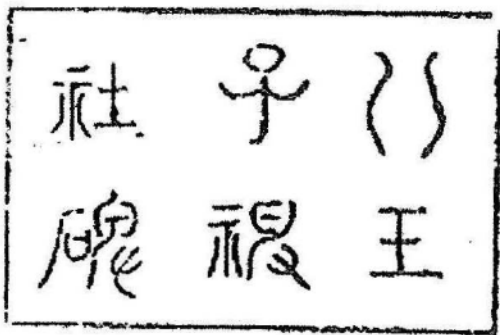 八王
子神
社碑